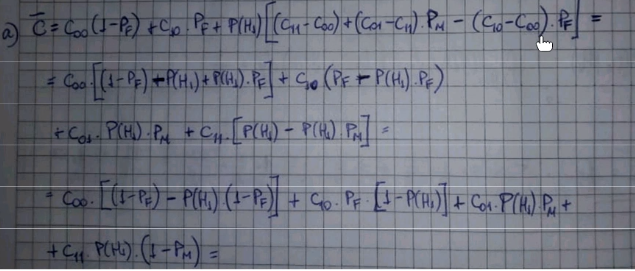 a) C̅ = C₀₀(1-P_F) + C₁₀·P_F + P(H₁)[(C₁₁-C₀₀)+(C₀₁-C₁₁)·P_M - (C₁₀-C₀₀)·P_F] =
= C₀₀·[(1-P_F)-P(H₁)+P(H₁)·P_F] + C₁₀(P_F - P(H₁)·P_F)
+C₀₁·P(H₁)·P_M + C₁₁·[P(H₁) - P(H₁)·P_M] =
= C₀₀·[(1-P_F) - P(H₁)(1-P_F)] + C₁₀·P_F·[1-P(H₁)] + C₀₁·P(H₁)P_M +
+C₁₁·P(H₁)·(1-P_M) =